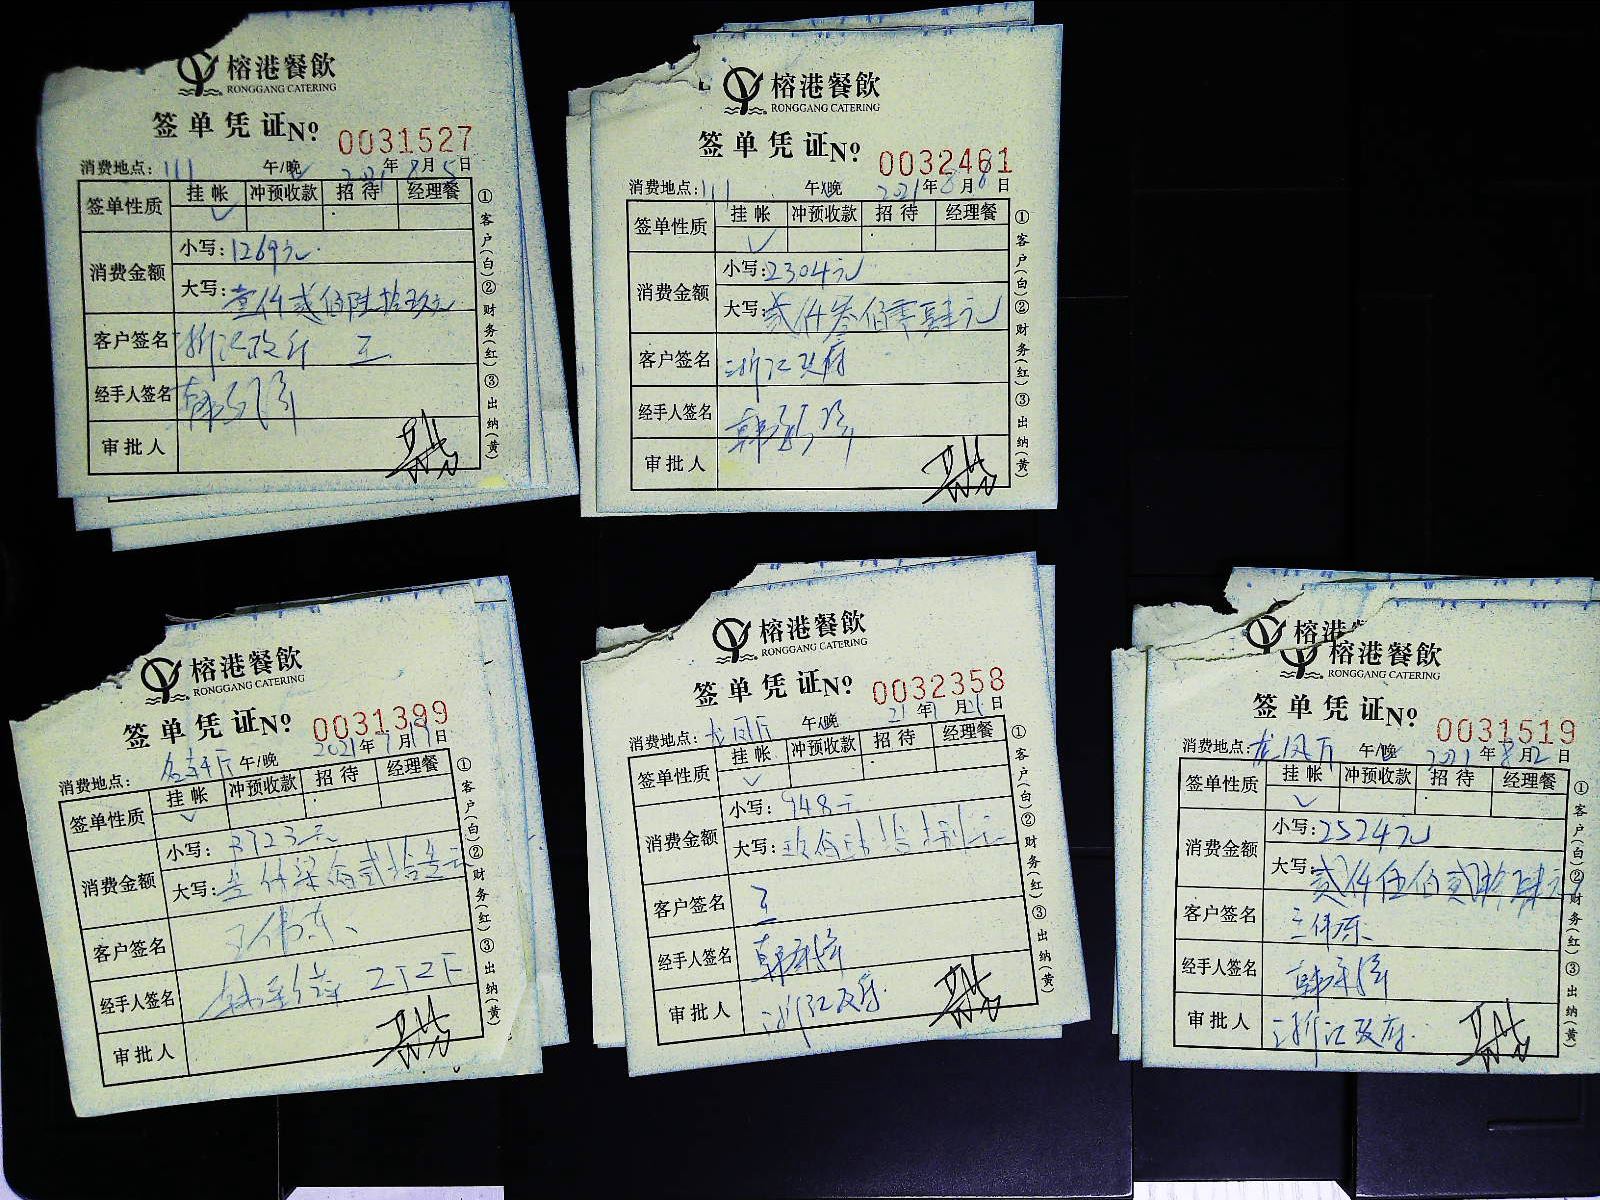 榕港餐飲
RONGGANG CATERING
签单凭证 № 0031527
消费地点：111 午/晚 2021年8月5日
签单性质 挂帐 冲预收款 招待 经理餐
✓
消费金额
小写：1269元
大写：壹仟贰佰陆拾玖元
客户签名 浙江政府 王
经手人签名
审批人
①客户(白)②财务(红)③出纳(黄)
榕港餐飲
RONGGANG CATERING
签单凭证 № 0032461
消费地点：111 午/晚 2021年8月6日
签单性质 挂帐 冲预收款 招待 经理餐
✓
消费金额
小写：2304元
大写：贰仟叁佰零肆元
客户签名 浙江政府
经手人签名
审批人
①客户(白)②财务(红)③出纳(黄)
榕港餐飲
RONGGANG CATERING
签单凭证 № 0031399
消费地点： 午/晚 2021年7月19日
签单性质 挂帐 冲预收款 招待 经理餐
✓
消费金额
小写：
大写：
客户签名 王伟东
经手人签名
审批人
①客户(白)②财务(红)③出纳(黄)
榕港餐飲
RONGGANG CATERING
签单凭证 № 0032358
消费地点：龙凤厅 午/晚 21年 月21日
签单性质 挂帐 冲预收款 招待 经理餐
✓
消费金额
小写：948元
大写：玖佰肆拾捌元
客户签名 王
经手人签名
审批人 浙江政府
①客户(白)②财务(红)③出纳(黄)
榕港
榕港餐飲
RONGGANG CATERING
签单凭证 № 0031519
消费地点：龙凤厅 午/晚 2021年8月2日
签单性质 挂帐 冲预收款 招待 经理餐
✓
消费金额
小写：2524元
大写：贰仟伍佰贰拾肆元
客户签名 王伟东
经手人签名
审批人 浙江政府
①客户(白)②财务(红)③出纳(黄)